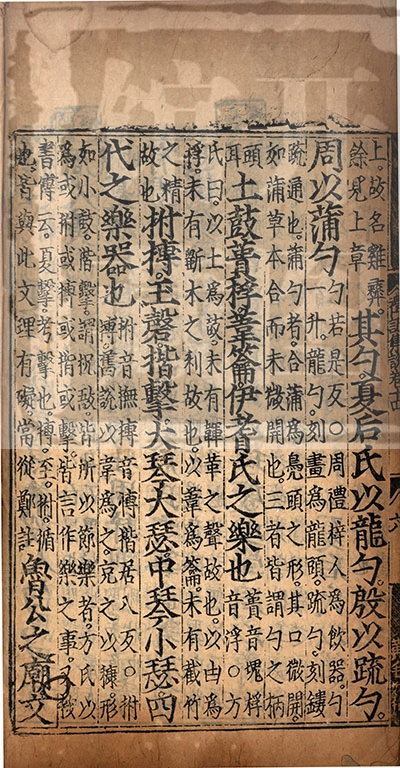 上。故名雞彝。
餘見上章
其勺。夏后氏以龍勺。殷以疏勺。
周以蒲勺
勺若是反〇周禮梓人為飲器。勺
一升。龍勺刻畫為龍頭。疏勺刻鏤
疏通也。蒲勺者。合蒲為鳧頭之形。其口微開。
如蒲草本合而末微開也。三者皆謂勺之柄
頭
耳
土鼓蕢桴葦籥伊耆氏之樂也
蕢音塊桴
音浮〇方
氏曰。以土為鼓。未有韗革之聲故也。以凷為
桴。未有斲木之利故也。以葦為籥。未有截竹
之精
故也
拊搏。玉磬揩擊大琴大瑟。中琴小瑟。四
代之樂器也
拊音撫搏音博揩居八反〇拊
搏舊說以韋為之。充以糠。形
如小鼓。揩擊。謂柷敔。皆所以節樂者。方氏以
為或拊或搏或揩或擊。皆言作樂之事。又按
書傳云。戛擊。考擊也。搏。至。拊。循
也。皆與此文理有礙。當從鄭註
魯公之廟文